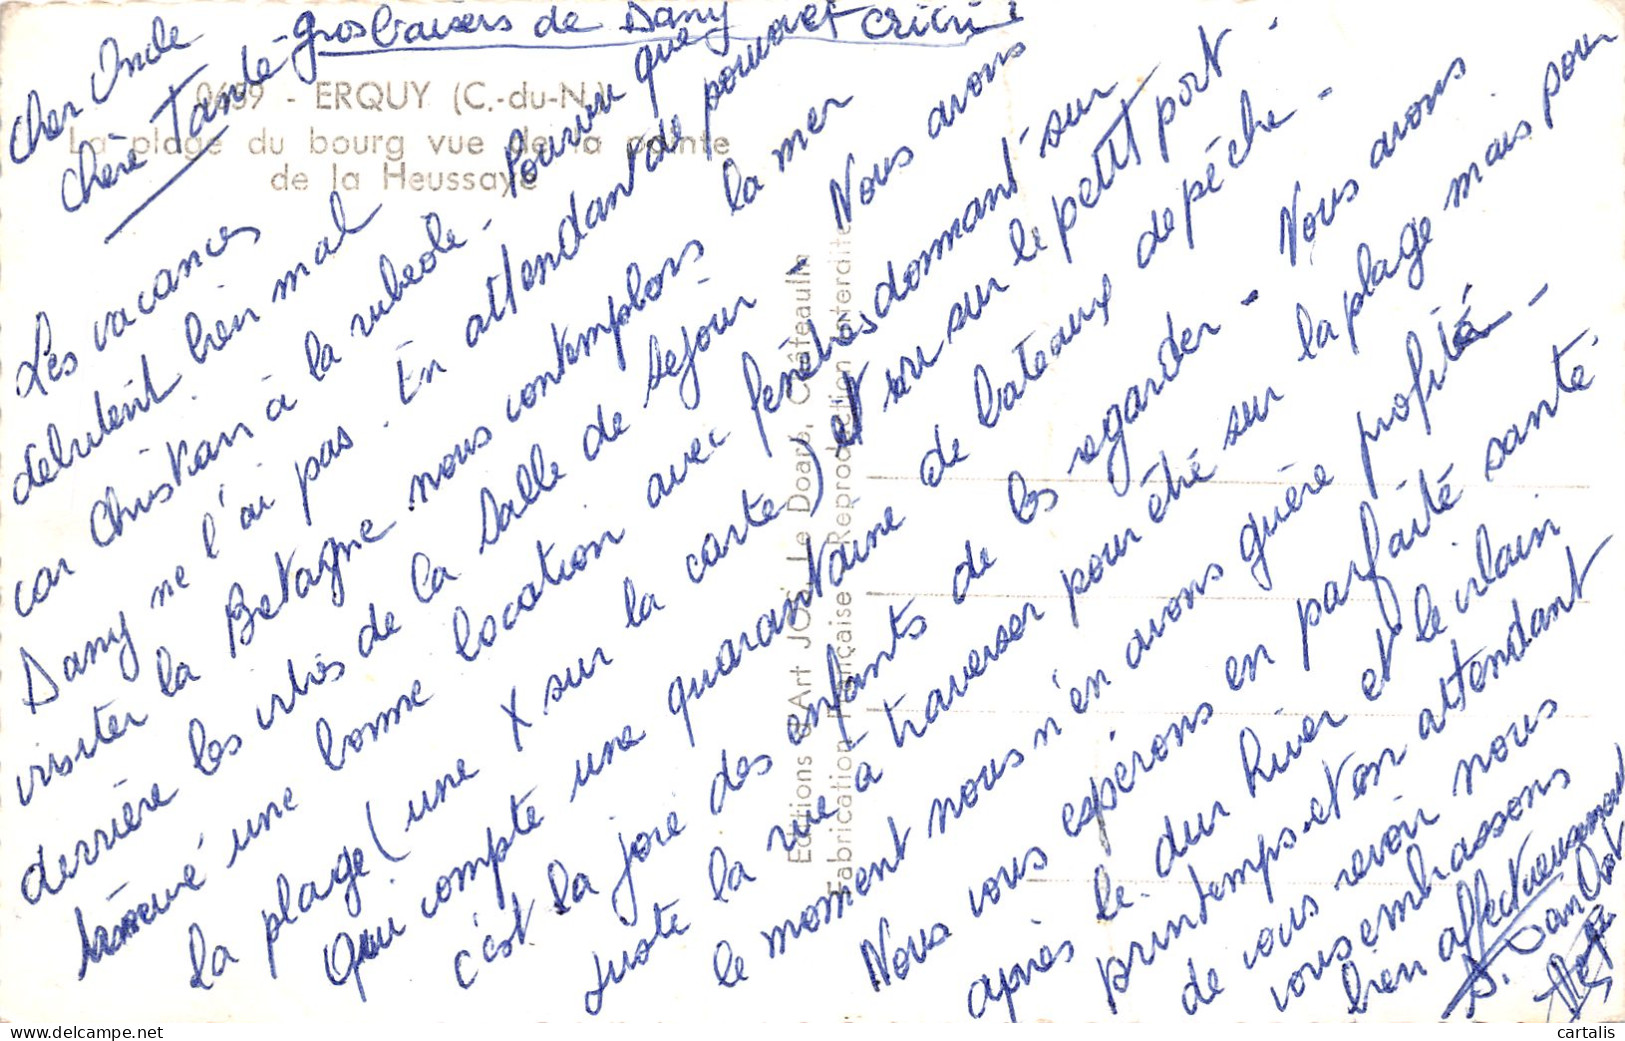 Gros baisers de Dany et Cricri
Cher Oncle
Chère Tante
Les vacances
débutent bien mal
car Christian à la rubéole - Pourvu que
Dany ne l'ai pas. En attendant de pouvoir
visiter la Bretagne nous contemplons la mer
derrière les vitres de la salle de séjour - Nous avons
trouvé une bonne location avec fenêtres donnant sur
la plage (une X sur la carte) et sur le petit port -
Qui compte une quarantaine de bateaux de pêche -
c'est la joie des enfants de les regarder - Nous avons
juste la rue à traverser pour être sur la plage mais pour
le moment nous n'en avons guère profité -
Nous vous espérons en parfaite santé.
après le dur hiver et le vilain
printemps et en attendant
de vous revoir nous
vous embrassons
bien affectueusement
0659 - ERQUY (C.-du-N.)
La plage du bourg vue de la pointe
de la Heussaye
Editions d'Art JOS Le Doaré, Châteaulin
Fabrication Française Reproduction Interdite
cartalis.com